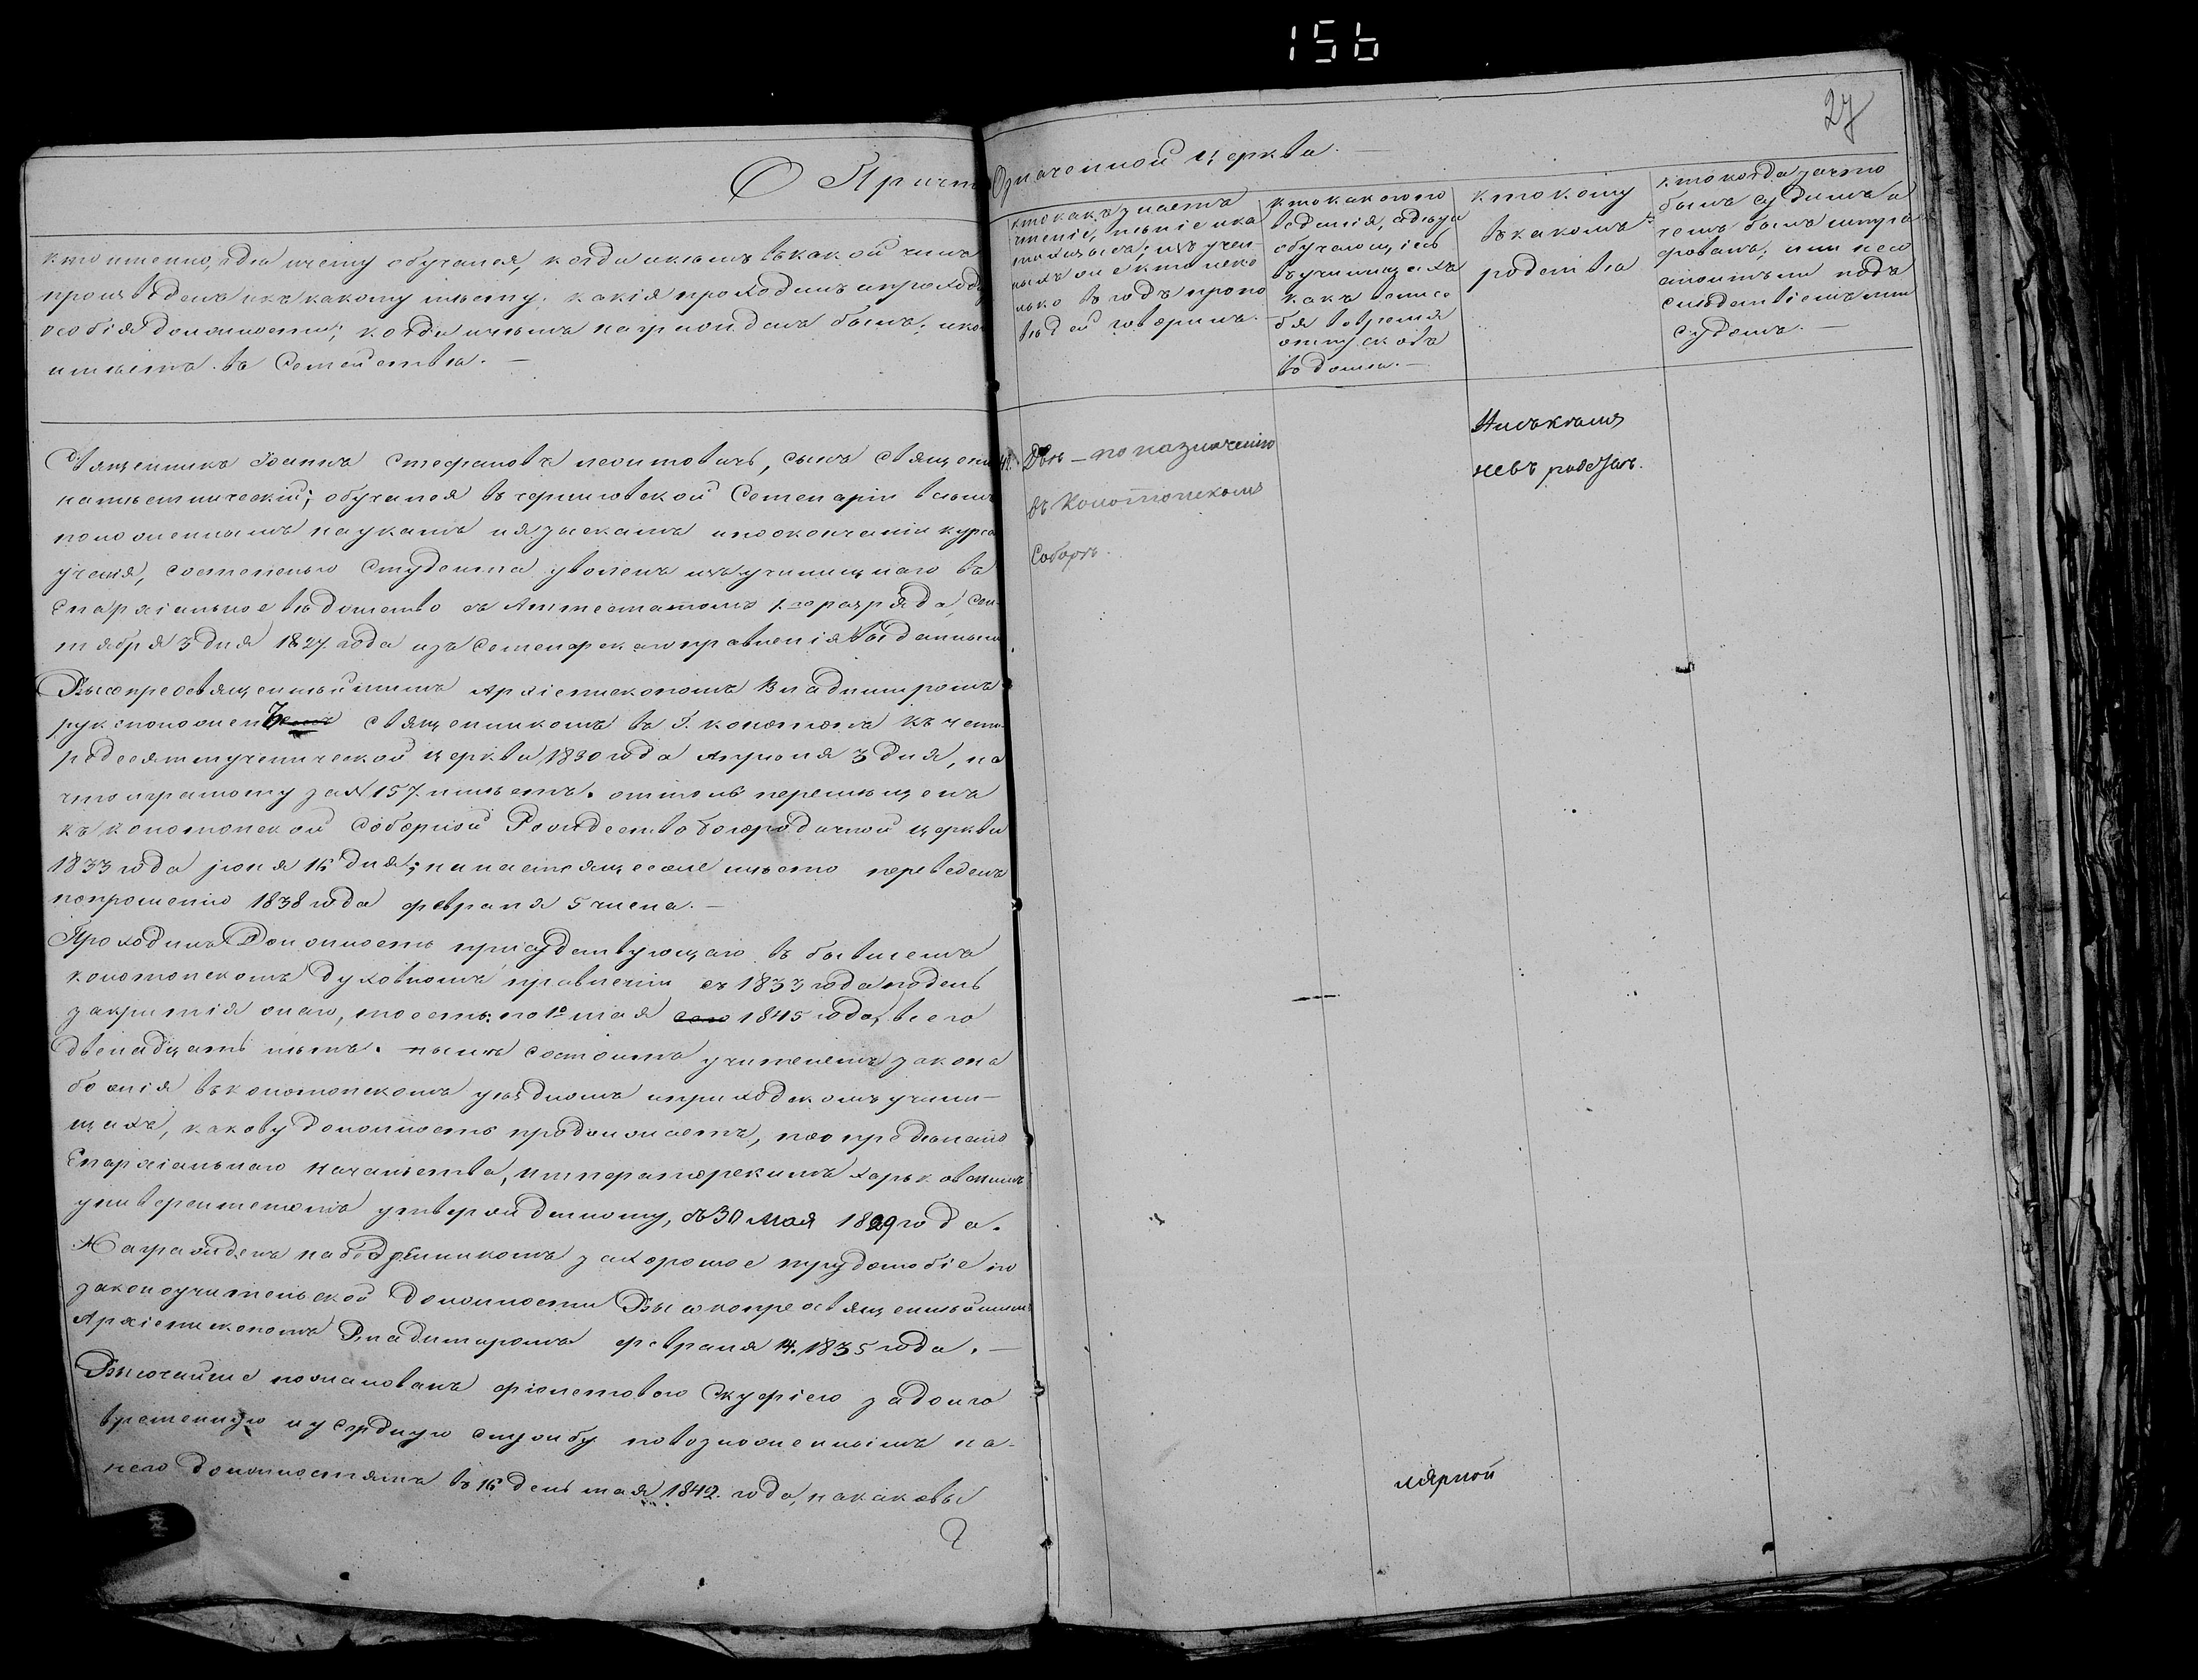 156
27
О Причтѣ Означенной церкви. —
кто именно, гдѣ и чему обучался, когда и кѣмъ въ какой чинъ
произведенъ и къ какому мѣсту; какія проходилъ и проходитъ
особія должности; когда и чѣмъ награжденъ былъ; и кого
имѣетъ въ Семействѣ. —
кто какъ знаетъ
чтеніе, пѣніе и ка
тихизисъ; изъ учен
ыхъ
лько въ годъ пропо
вѣдей говорилъ. —
кто какого по
веденія, а дѣти
обучающіесь
въ училищахъ
какъ вели се
бя во время
отпусковъ
въ домы. —
кто кому
въ какомъ
родствѣ
кто когда за что
былъ судимъ и
чемъ былъ штра
фованъ; или не со
стоитъ ли подъ
слѣдствіемъ или
судомъ. —
Священникъ Іоаннъ Стефановъ Леонтовичъ, сынъ Священ
намѣстническій; обучался въ черниговской Семенаріи всѣмъ
положеннымъ наукамъ и языкамъ и по окончаніи курса
ученія, со степенью Студента уволенъ изъ училищнаго въ
Епархіальное вѣдомство съ Аттестатомъ 1го разряда, Сен-
тября 3 дня 1827 года изъ Семенарскаго правленія выданнымъ
Высокопреосвященнѣйшимъ Архіепископомъ Владимиромъ
рукоположенъ священникомъ въ Г. конотопъ къ четы-
редесятмученической церкви 1830 года Апрѣля 3 дня, на
что и грамоту за № 157. имѣетъ. оттоль перемѣщенъ
къ конотопской Соборной Рождество богородичной церкви
1833 года іюня 16 дня; на настоящее же мѣсто переведенъ
по прошенію 1838 года февраля 5 числа. —
Проходилъ Должность присудствующаго въ бывшемъ
конотопскомъ духовномъ правленіи съ 1833 года по день
закрытія онаго, то есть: по 1е мая 1845 года, всего
двенадцать лѣтъ. нынѣ состоитъ учителемъ закона
божія въ конотопскомъ уѣздномъ и приходскомъ учили-
щахъ, какову должность продолжаетъ, по опредѣленію
Епархіальнаго Начальства, Императорскимъ харьковскимъ
университетомъ утвержденному, съ 30 Мая 1829 года.
Награжденъ набедренникомъ за хорошое трудолюбіе по
законоучительской должности Высокопреосвященнѣйшимъ
Архіепископомъ Владимиромъ февраля 14. 1835 года. —
Высочайше пожалованъ фіолетовою Скуфіею за долго
временную и усердную службу по возложеннымъ на-
него должностямъ въ 16 день мая 1842. года, на каковы
Двѣ — по назначенію
въ Конотопскомъ
Соборѣ.
Никакимъ
не въ родствѣ.
лярной